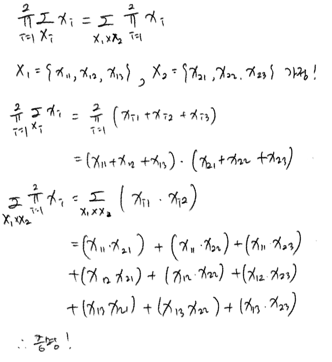 ∏_{i=1}^{2} Σ_{X_i} x_i = Σ_{X_1×X_2} ∏_{i=1}^{2} x_i
X_1 = {x_{11}, x_{12}, x_{13}}, X_2 = {x_{21}, x_{22}, x_{23}} 가정!
∏_{i=1}^{2} Σ_{X_i} x_i = ∏_{i=1}^{2} (x_{i1} + x_{i2} + x_{i3})
= (x_{11} + x_{12} + x_{13}) · (x_{21} + x_{22} + x_{23})
Σ_{X_1×X_2} ∏_{i=1}^{2} x_i = Σ_{X_1×X_2} (x_{i1} · x_{i2})
= (x_{11} · x_{21}) + (x_{11} · x_{22}) + (x_{11} x_{23})
+ (x_{12} x_{21}) + (x_{12} · x_{22}) + (x_{12} x_{23})
+ (x_{13} x_{21}) + (x_{13} x_{22}) + (x_{13} · x_{23})
∴ 증명!